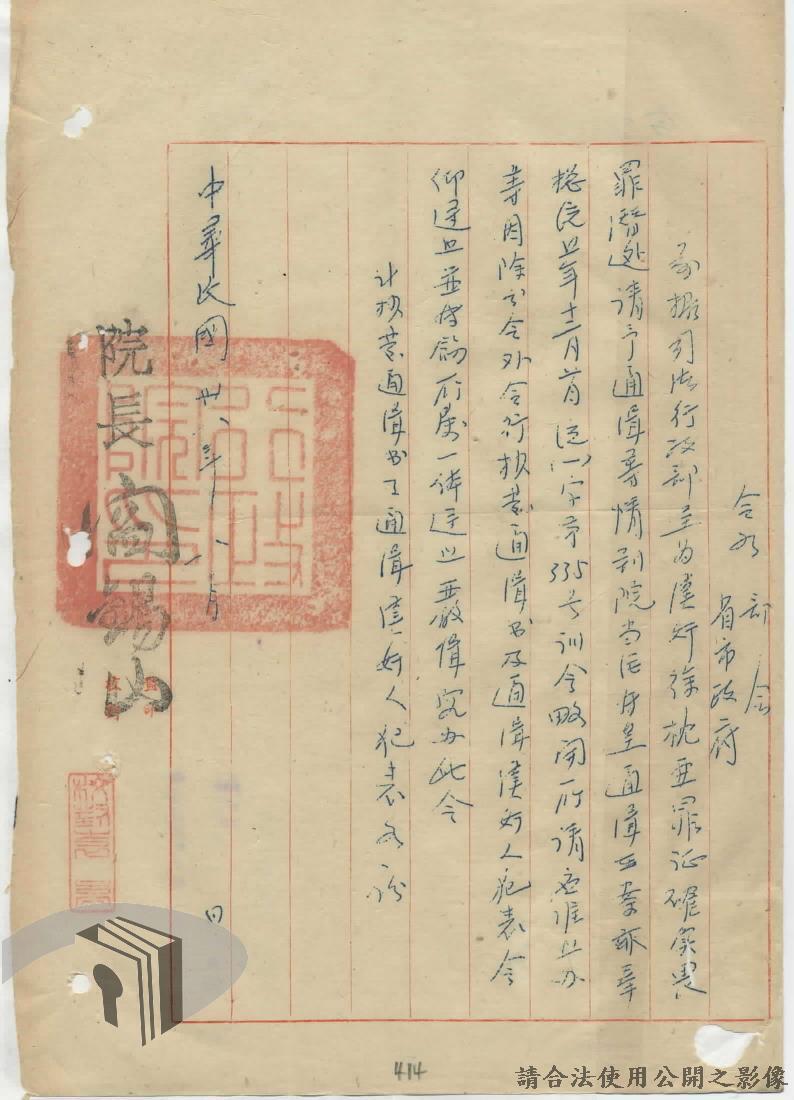 令各部會
省市政府
前據司法行政部呈為漢奸徐枕亞罪證確實畏
罪潛逃請予通緝等情到院當經呈通緝在案茲奉
總統卅年十二月 日 (一)字第335號訓令略開所請應准照办
等因除分令外合行抄發通緝書及通緝漢奸人犯表令
仰遵照並轉飭所屬一体遵照嚴緝究办此令
計抄發通緝書及通緝漢奸人犯表各一份
中華民國卅八年 月 日
院長閻錫山
行政院印
414
請合法使用公開之影像